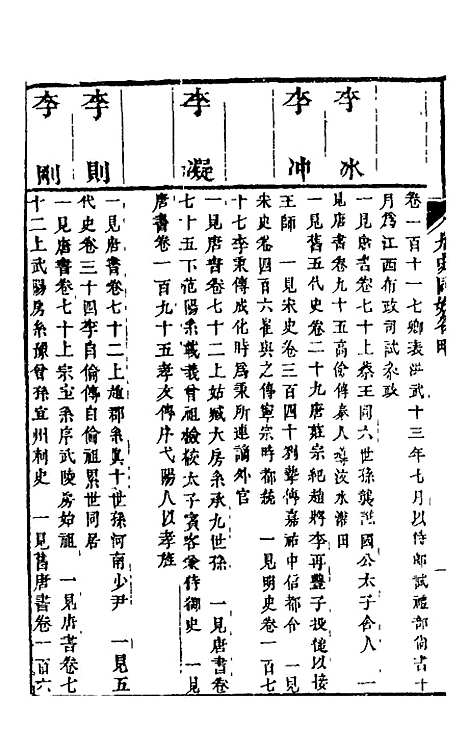 卷一百十一七卿表洪武十三年七月以侍郎試禮部尚書十
月爲江西布政司試叅政
李冰
一見唐書卷七十上蔡王房六世孫襲 國公太子舍人 一
見唐書卷九十五高儉傳秦人導汶水溉田
李冲
一見舊五代史卷二十九唐莊宗紀趙將李再豐子投縋以接
王師 一見宋史卷三百四十劉摯傳嘉祐中信都令 一見
宋史卷四百六崔與之傳寧宗時都統 一見明史卷一百七
十七李秉傳成化時爲秉所連謫外官
李凝
一見唐書卷七十二上姑臧大房系承九世孫 一見唐書卷
七十五下范陽系載羲曾祖檢校太子賓客兼侍御史 一見
唐書卷一百九十五孝友傳序弋陽人以孝旌
李則
一見唐書卷七十二上趙郡系眞十世孫河南少尹 一見五
代史卷三十四李自倫傳自倫祖累世同居
李剛
一見唐書卷七十上宗室系序武陵房始祖 一見唐書卷七
十二上武陽房系豫曾孫宜州刺史 一見舊唐書卷一百六